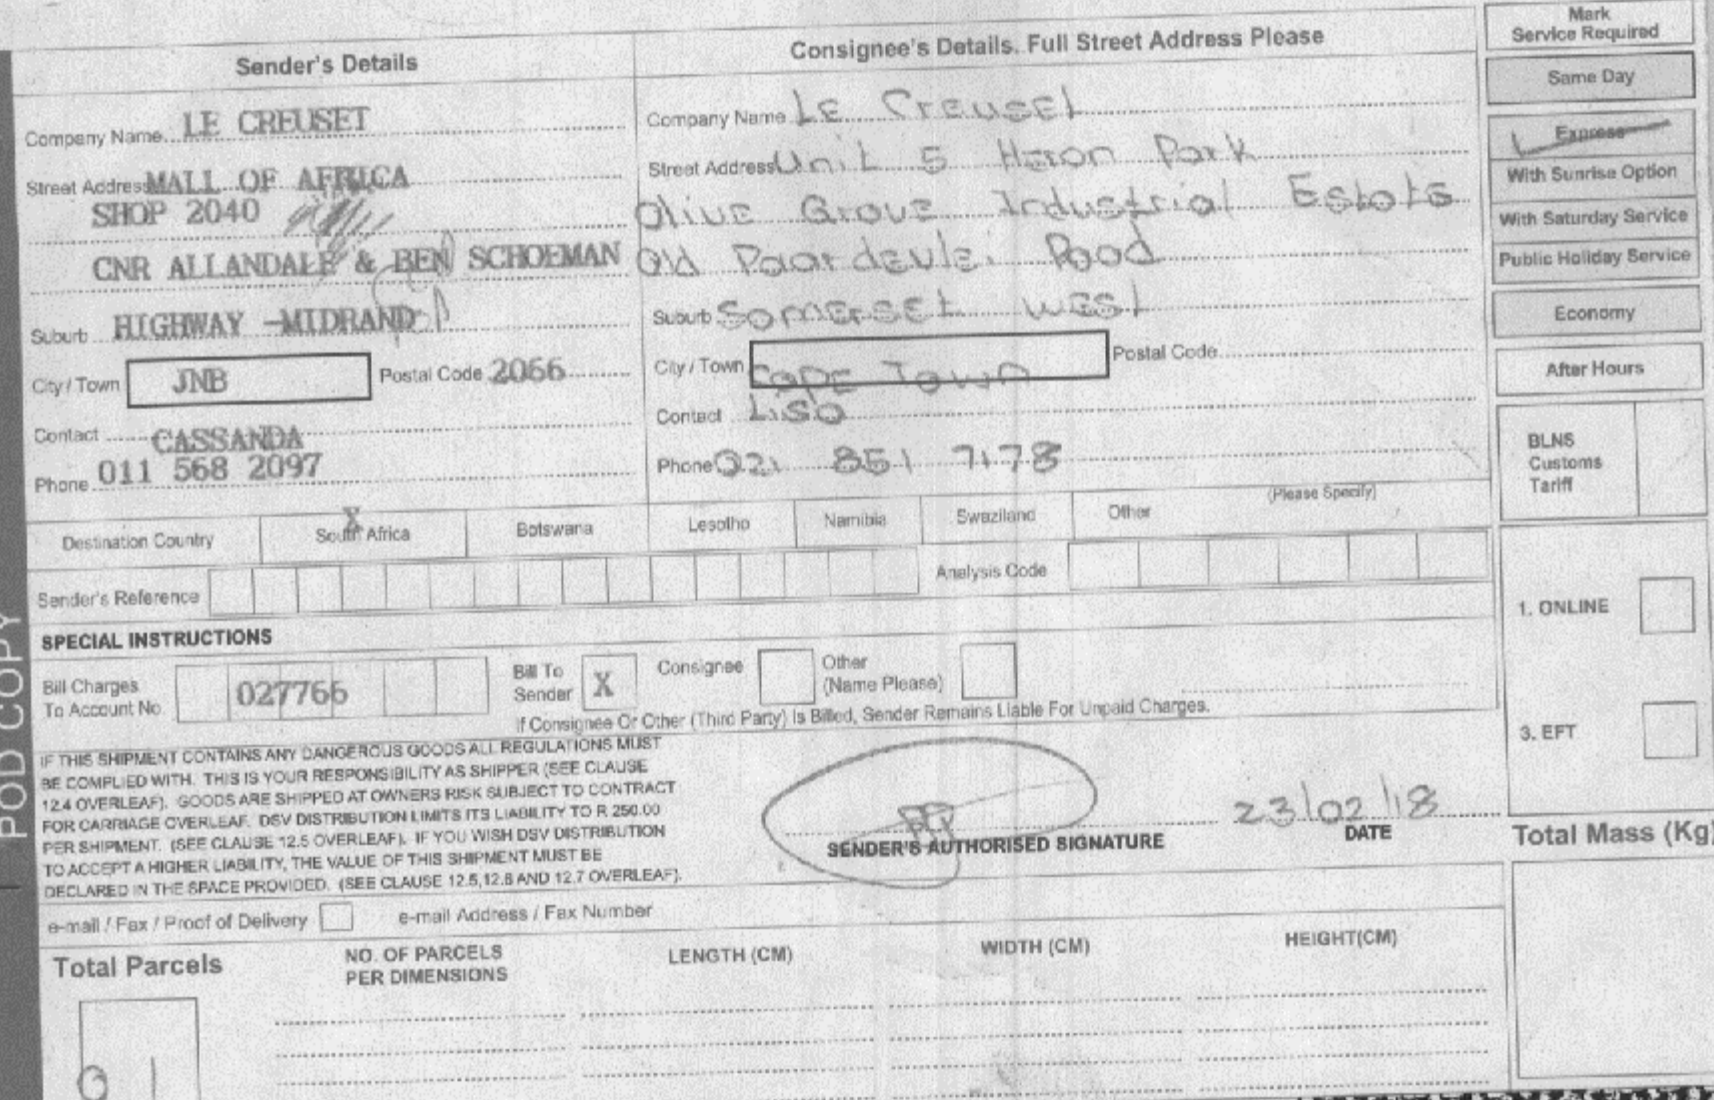 Sender's Details
Company Name LE CREUSET
Street Address MALL OF AFRICA
SHOP 2040
CNR ALLANDALE & BEN SCHOEMAN
Suburb HIGHWAY -MIDRAND
City / Town JNB Postal Code 2066
Contact CASSANDA
Phone 011 568 2097
Consignee's Details. Full Street Address Please
Company Name Le Creuset
Street Address Unit 5 Heron Park
Olive Grove Industrial Estate
Old Paardevlei Road
Suburb Somerset West
City / Town Cape Town Postal Code
Contact Lisa
Phone 021 851 7178
Mark
Service Required
Same Day
Express
With Sunrise Option
With Saturday Service
Public Holiday Service
Economy
After Hours
BLNS
Customs
Tariff
Destination Country South Africa X Botswana Lesotho Namibia Swaziland Other (Please Specify)
Sender's Reference Analysis Code
1. ONLINE
3. EFT
SPECIAL INSTRUCTIONS
Bill Charges
To Account No. 027766
Bill To
Sender X Consignee Other
(Name Please)
If Consignee Or Other (Third Party) Is Billed, Sender Remains Liable For Unpaid Charges.
IF THIS SHIPMENT CONTAINS ANY DANGEROUS GOODS ALL REGULATIONS MUST
BE COMPLIED WITH. THIS IS YOUR RESPONSIBILITY AS SHIPPER (SEE CLAUSE
12.4 OVERLEAF). GOODS ARE SHIPPED AT OWNERS RISK SUBJECT TO CONTRACT
FOR CARRIAGE OVERLEAF. DSV DISTRIBUTION LIMITS ITS LIABILITY TO R 250.00
PER SHIPMENT. (SEE CLAUSE 12.5 OVERLEAF). IF YOU WISH DSV DISTRIBUTION
TO ACCEPT A HIGHER LIABILITY, THE VALUE OF THIS SHIPMENT MUST BE
DECLARED IN THE SPACE PROVIDED. (SEE CLAUSE 12.5,12.6 AND 12.7 OVERLEAF).
SENDER'S AUTHORISED SIGNATURE
23/02/18
DATE
Total Mass (Kg)
e-mail / Fax / Proof of Delivery e-mail Address / Fax Number
Total Parcels
NO. OF PARCELS
PER DIMENSIONS
LENGTH (CM)
WIDTH (CM)
HEIGHT(CM)
01
POD COPY